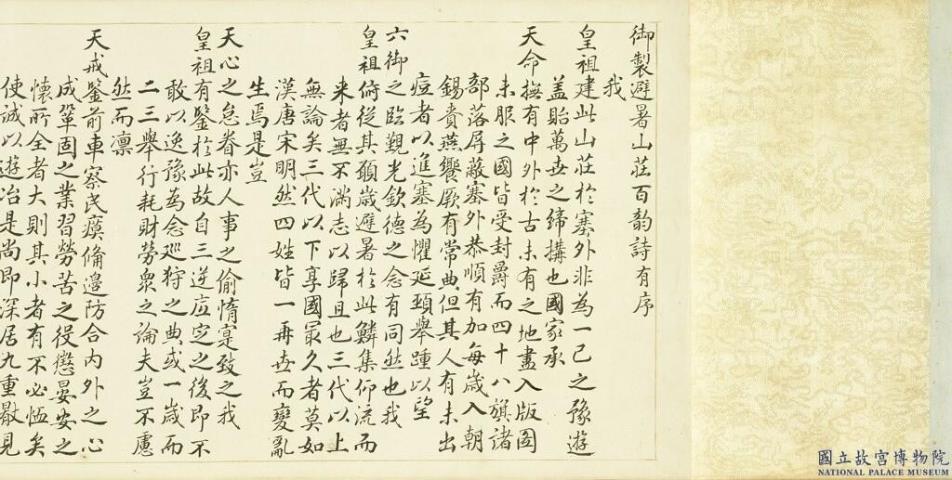 御製避暑山莊百韵詩有序
我
皇祖建此山莊於塞外非為一己之豫遊
蓋貽萬世之締構也國家承
天命撫有中外於古未有之地盡入版圖
未服之國皆受封爵而四十八旗諸
部落屏蔽塞外恭順有加每歲入朝
錫賚燕饗厥有常典但其人有未出
痘者以進塞為懼延頸舉踵以望
六御之臨覲光欽德之念有同然也我
皇祖俯從其願歲避暑於此鱗集仰流而
來者無不滿志以歸且也三代以上
無論矣三代以下享國最久者莫如
漢唐宋明然四姓皆一再世而變亂
生焉是豈
天心之怠眷亦人事之偷惰寔致之我
皇祖有鑒於此故自三逆底定之後即不
敢以逸豫為念巡狩之典或一歲而
二三舉行耗財勞衆之論夫豈不慮
然而凛
天戒鑒前車察民瘼備邊防合內外之心
成鞏固之業習勞苦之役懲晏安之
懷所全者大則其小者有不必恤矣
使誠以遊冶是尚即深居九重毇見
國立故宮博物院
NATIONAL PALACE MUSEUM